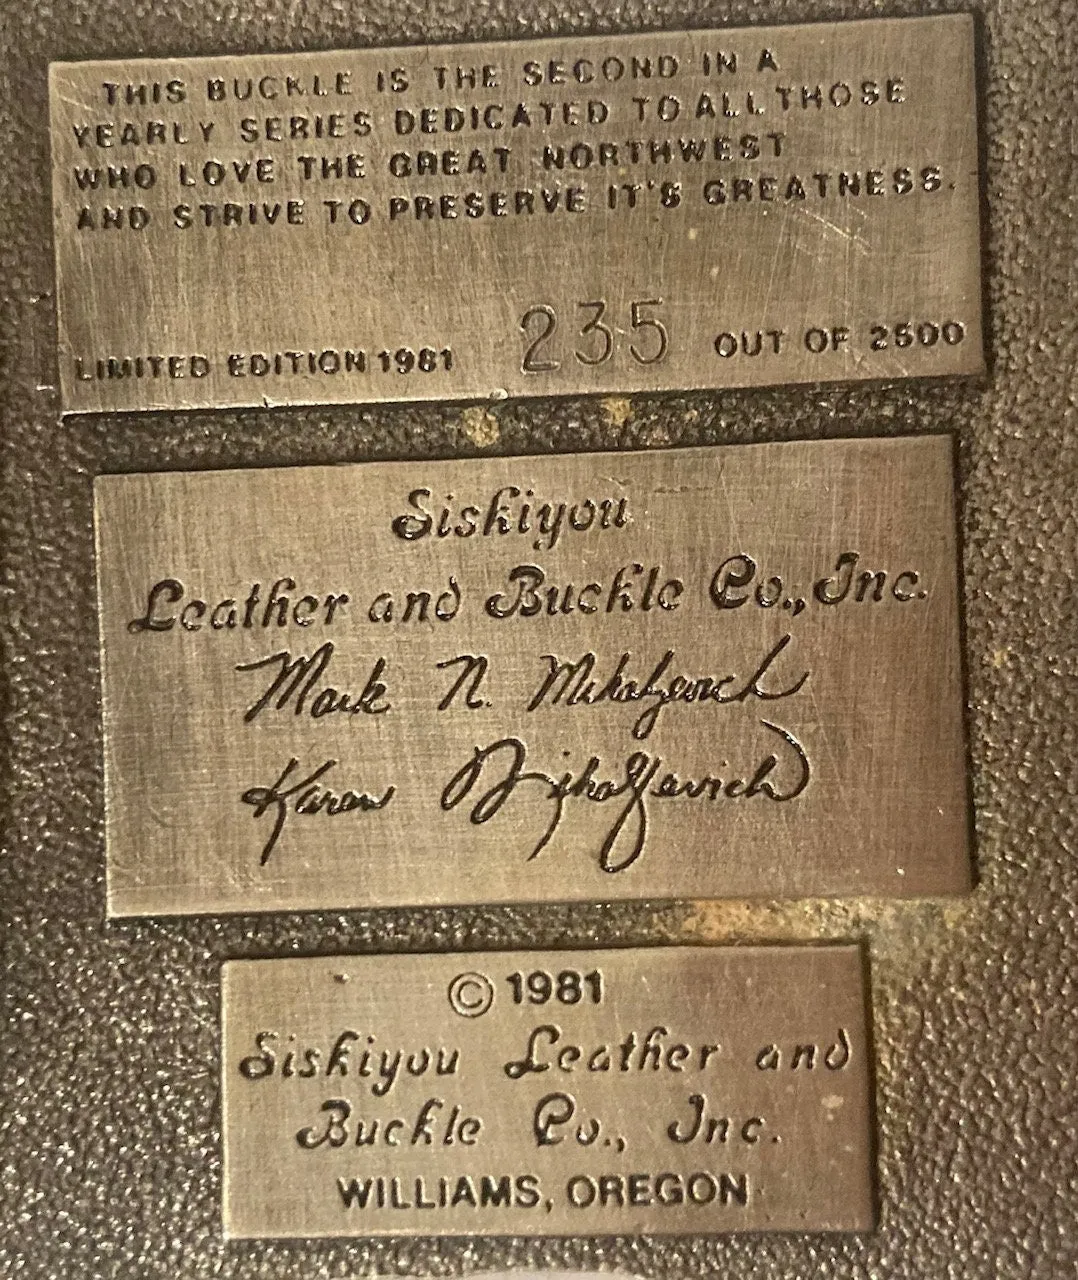 THIS BUCKLE IS THE SECOND IN A
YEARLY SERIES DEDICATED TO ALL THOSE
WHO LOVE THE GREAT NORTHWEST
AND STRIVE TO PRESERVE IT'S GREATNESS.
LIMITED EDITION 1981 235 OUT OF 2500
Siskiyou
Leather and Buckle Co., Inc.
Mark N. Mihaljevich
Karen Mihaljevich
© 1981
Siskiyou Leather and
Buckle Co., Inc.
WILLIAMS, OREGON